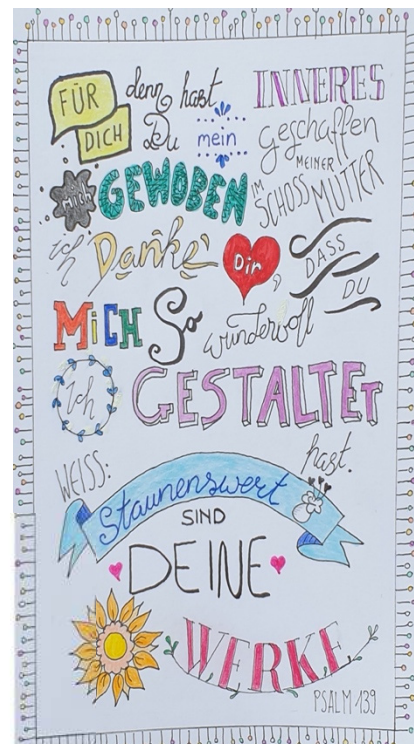 FÜR DICH
denn hast Du mein INNERES
geschaffen
MICH GEWOBEN IM SCHOSS MEINER MUTTER
ich Danke Dir, DASS DU
MiCH So wundervoll
GESTALTET
hast.
Ich
WEISS:
Staunenswert
SIND
DEINE
WERKE
PSALM 139